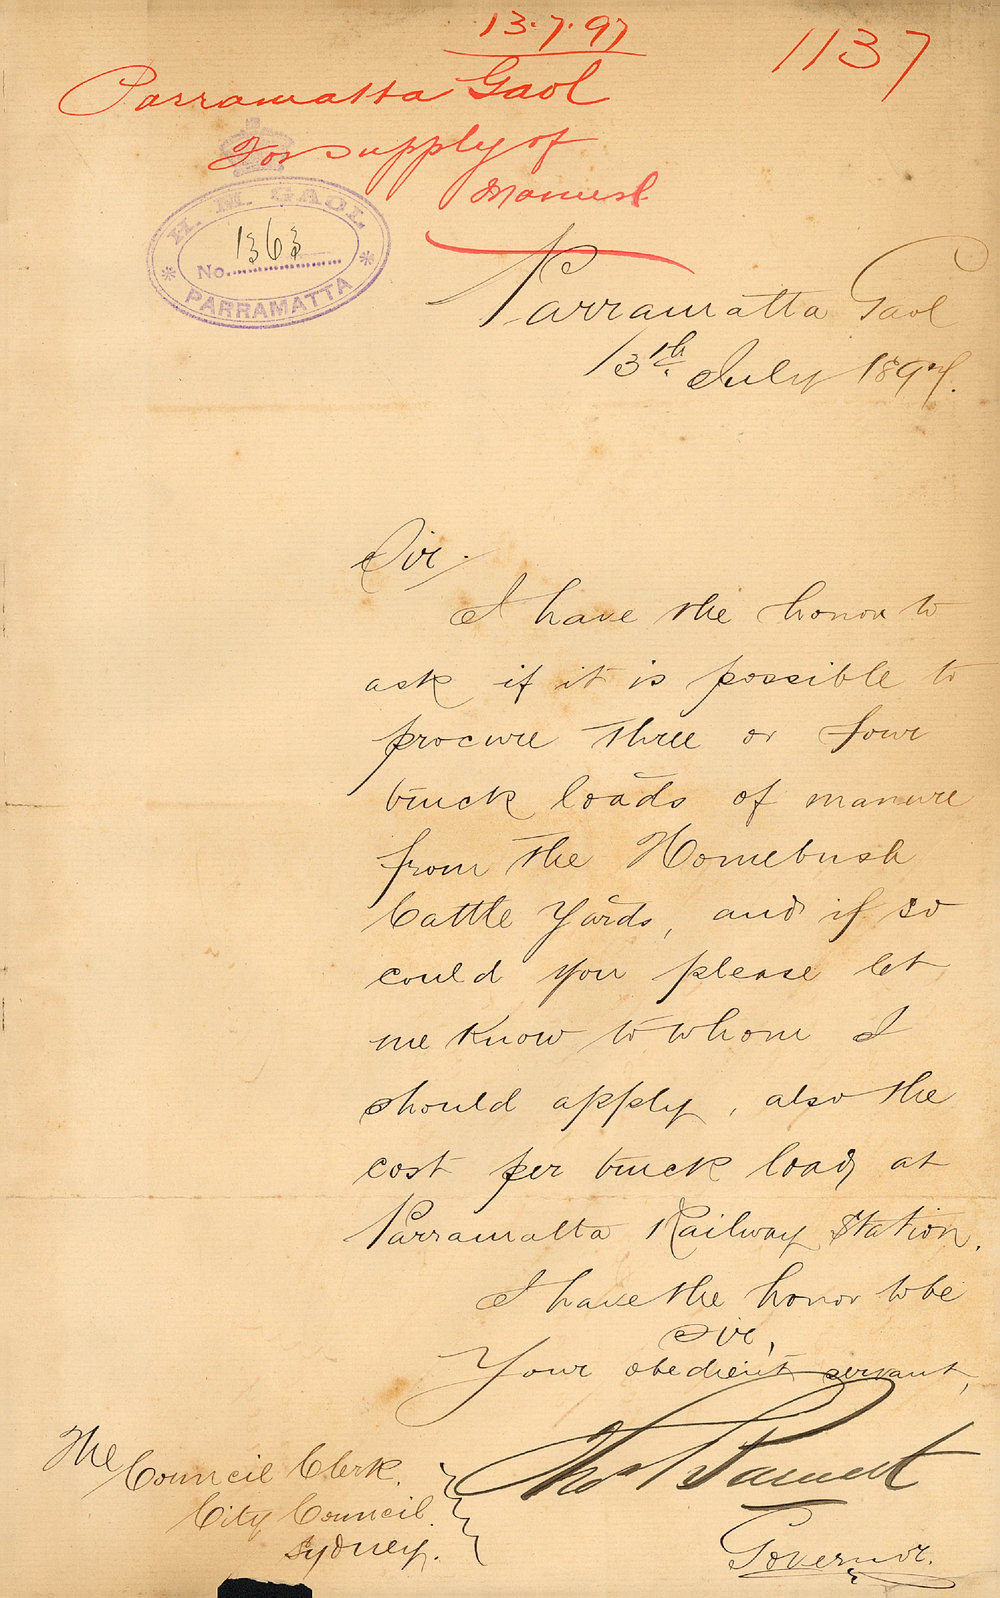 13.7.97
1137
Parramatta Gaol
For supply of
Manure
H. M. GAOL
No. 1363
PARRAMATTA
Parramatta Gaol
13th July 1897.
Sir,
I have the honor to
ask if it is possible to
procure three or four
truck loads of manure
from the Homebush
Cattle Yards, and if so
could you please let
me know to whom I
should apply, also the
cost per truck load at
Parramatta Railway Station.
I have the honor to be
Sir,
Your obedient servant,
Thos
Governor.
The Council Clerk.
City Council.
Sydney.